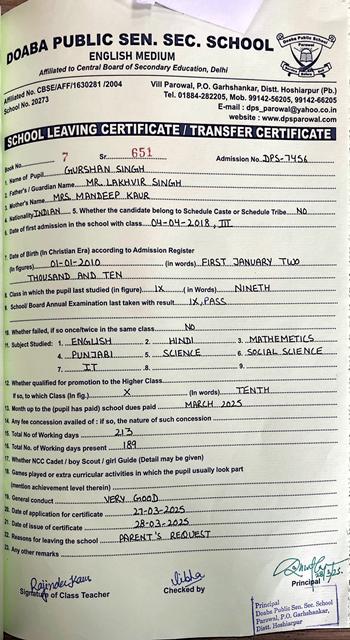 DOABA PUBLIC SEN. SEC. SCHOOL
ENGLISH MEDIUM
Affiliated to Central Board of Secondary Education, Delhi
Affiliated No. CBSE/AFF/1630281 /2004
School No. 20273
Vill Parowal, P.O. Garhshankar, Distt. Hoshiarpur (Pb.)
Tel. 01884-282205, Mob. 99142-56205, 99142-66205
E-mail : dps_parowal@yahoo.co.in
website : www.dpsparowal.com
SCHOOL LEAVING CERTIFICATE / TRANSFER CERTIFICATE
Book No. 7 Sr. 651 Admission No. DPS-7456
1. Name of Pupil GURSHAN SINGH
2. Father's / Guardian Name MR. LAKHVIR SINGH
3. Mother's Name MRS. MANDEEP KAUR
4. Nationality INDIAN 5. Whether the candidate belong to Schedule Caste or Schedule Tribe NO
6. Date of first admission in the school with class 04-04-2018, III
7. Date of Birth (In Christian Era) according to Admission Register
(In figures) 01-01-2010 (in words) FIRST JANUARY TWO
THOUSAND AND TEN
8. Class in which the pupil last studied (in figure) IX (in Words) NINETH
9. School/ Board Annual Examination last taken with result IX, PASS
10. Whether failed, if so once/twice in the same class. NO
11. Subject Studied: 1. ENGLISH 2. HINDI 3. MATHEMETICS
4. PUNJABI 5. SCIENCE 6. SOCIAL SCIENCE
7. IT 8. 9.
12. Whether qualified for promotion to the Higher Class
If so, to which Class (In fig.) X (In words) TENTH
13. Month up to the (pupil has paid) school dues paid MARCH 2025
14. Any fee concession availed of : if so, the nature of such concession
15. Total No of Working days 213
16. Total No. of Working days present 189
17. Whether NCC Cadet / boy Scout / girl Guide (Detail may be given)
18. Games played or extra curricular activities in which the pupil usually look part
(mention achievement level therein)
19. General conduct VERY GOOD
20. Date of application for certificate 27-03-2025
21. Date of issue of certificate 28-03-2025
22. Reasons for leaving the school PARENT'S REQUEST
23. Any other remarks
Rajinder Kaur
Signature of Class Teacher
Checked by
Principal
Principal
Doaba Public Sen. Sec. School
Parowal, P.O. Garhshankar,
Distt. Hoshiarpur